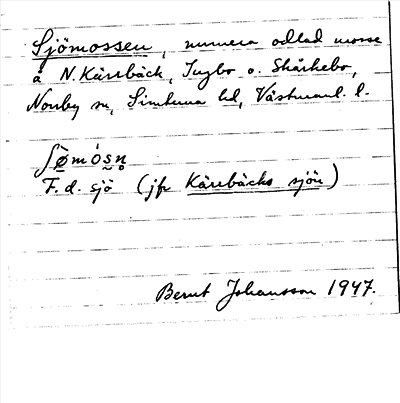 Sjömossen, numera odlad mosse
å N. Kärrbäck, Ingbo o. Skårhebo,
Norrby sn, Simtuna hd, Västmanl. l.
ʃø̀mósn̥
F. d. sjö (jfr Kärrbäcks sjön)
Bernt Johansson 1947.